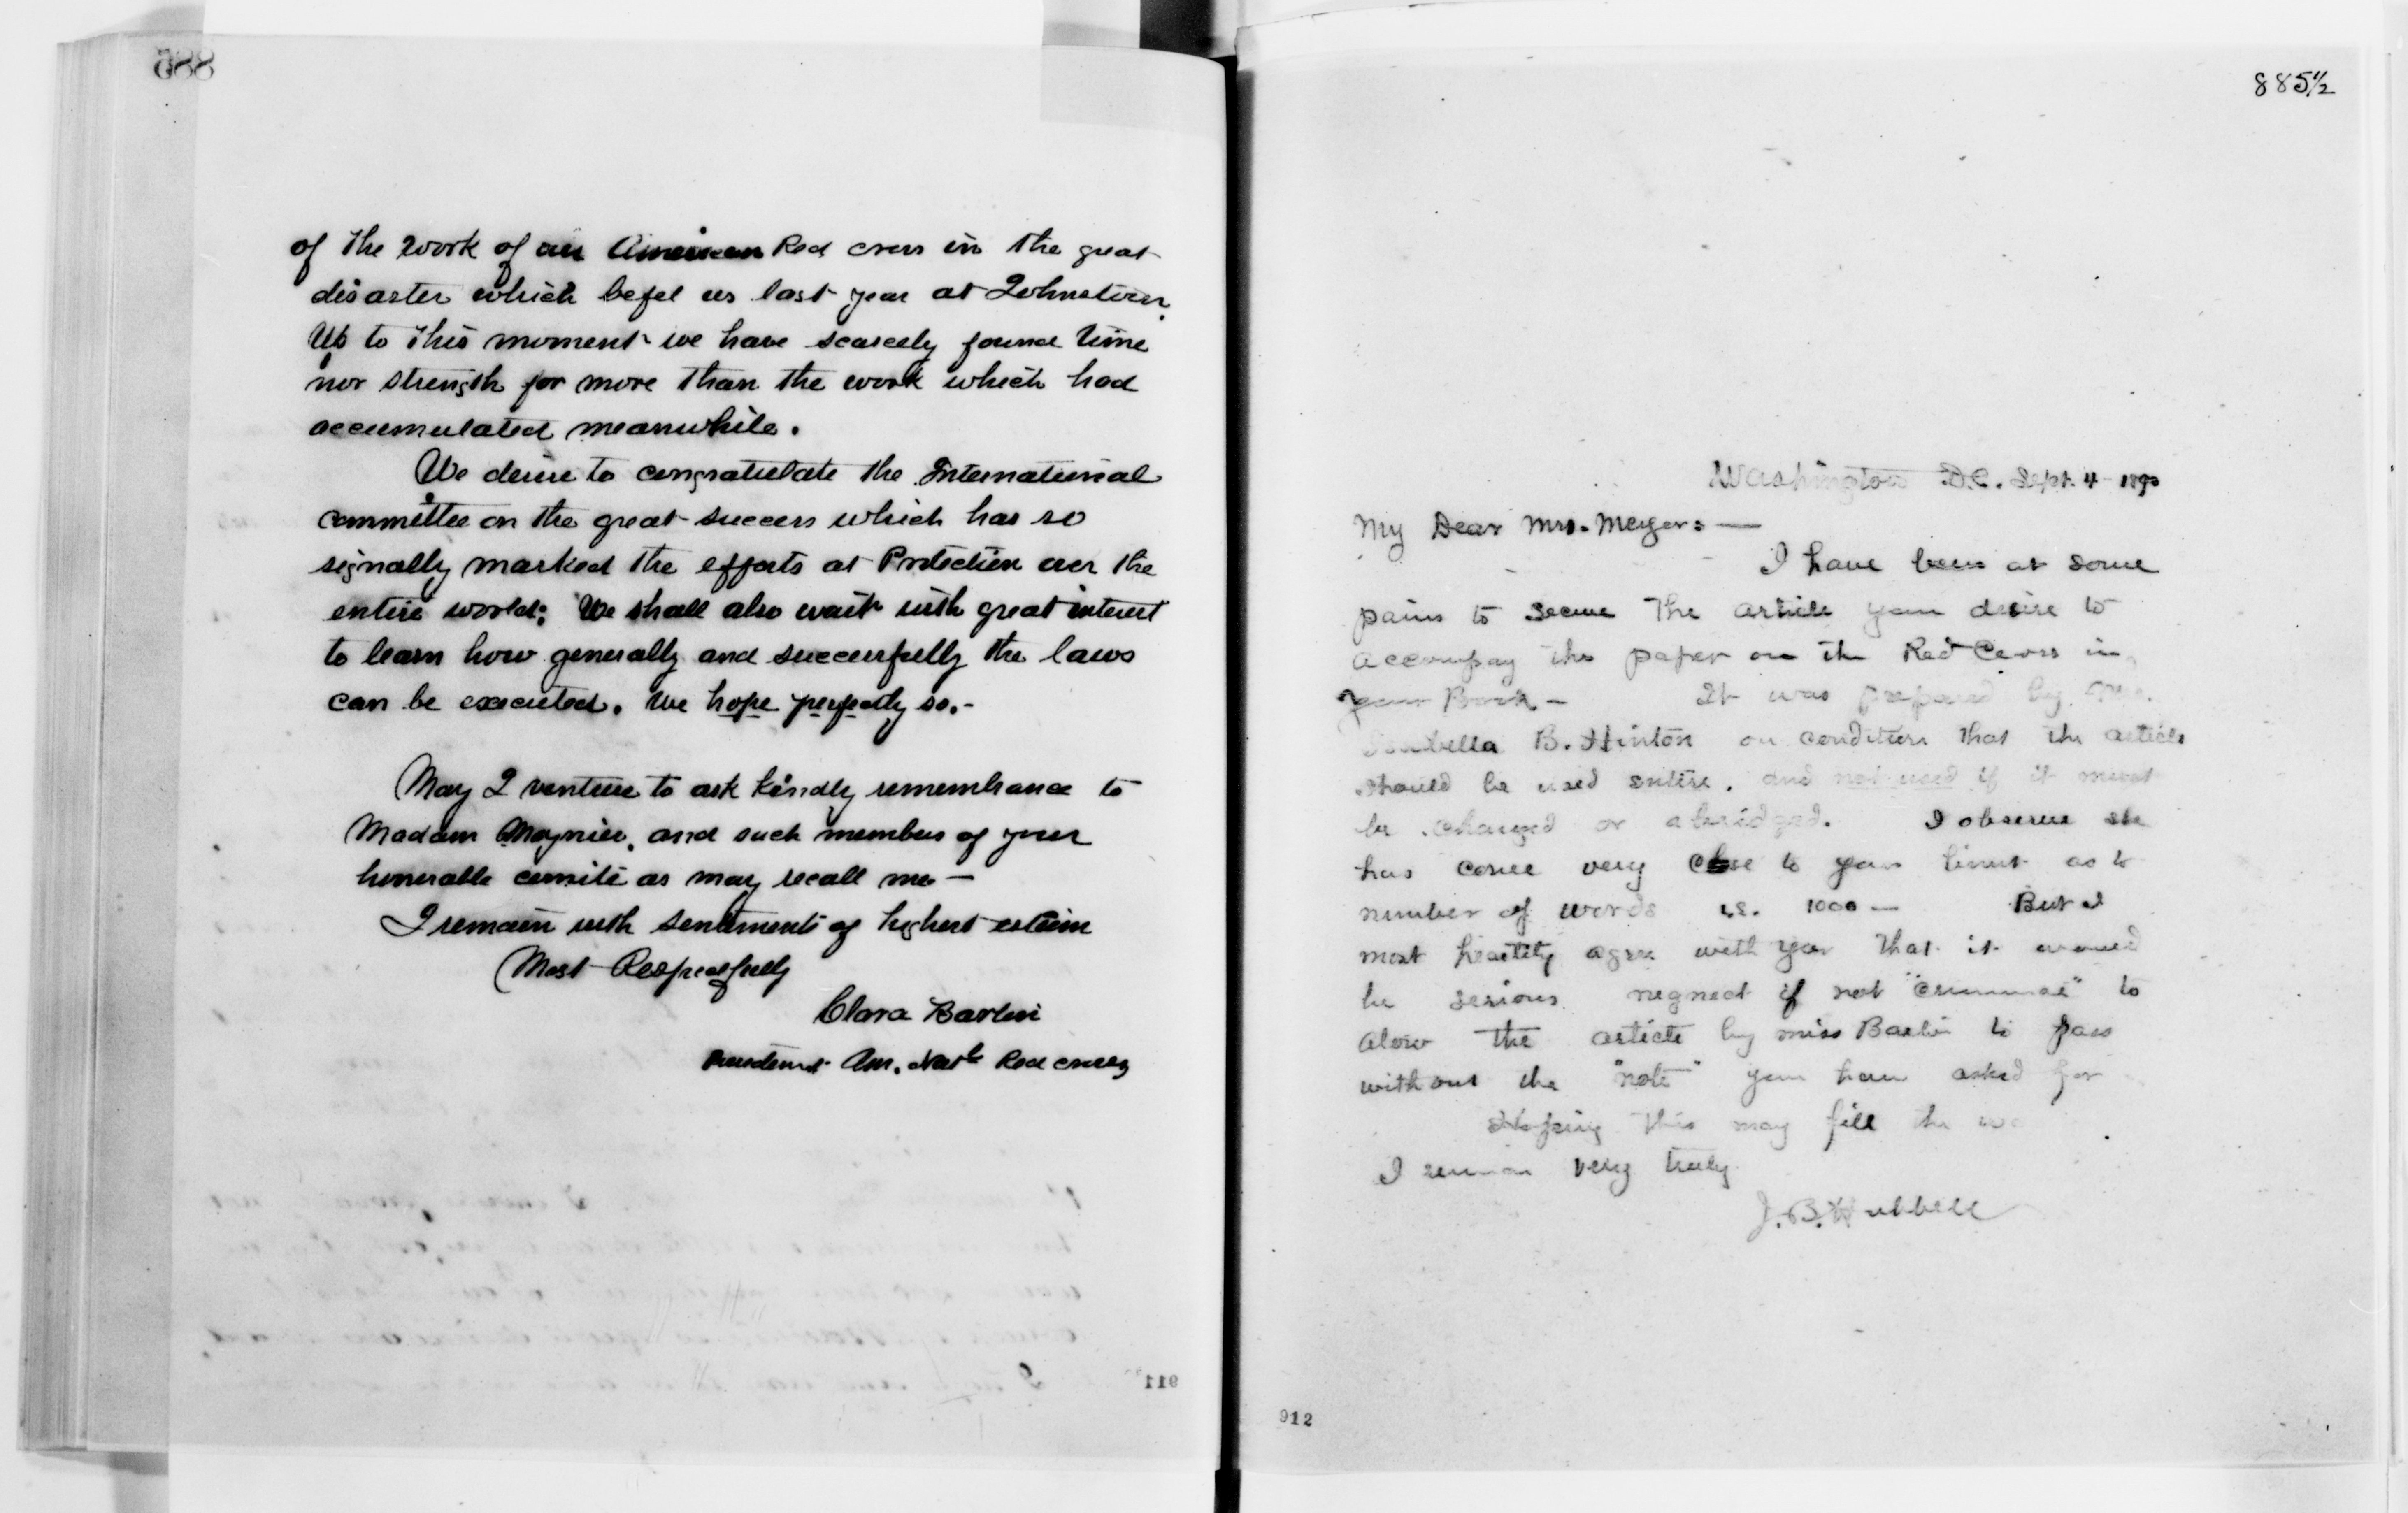 885
of the work of an American Red cross in the great
disaster which befel us last year at Johnstown.
Up to this moment we have scarcely found time
nor strength for more than the work which had
accumulated meanwhile.
We desire to congratulate the International
committee on the great success which has so
signally marked the efforts at Protection over the
entire world; We shall also wait with great interest
to learn how generally and successfully the laws
can be executed. We hope perfectly so.-
May I venture to ask kindly remembrance to
Madam Moynier, and such members of your
honorable comité as may recall me —
I remain with sentiments of highest esteem
Most Respectfully
Clara Barton
President Am. Natl Red Cross
911
885½
Washington D.C. Sept. 4 1890
My Dear Mrs. Meyers: —
I have been at some
pains to secure the article you desire to
accompay the paper on the Red Cross in
your Book — It was prepared by Mrs.
Isabella B. Hinton on condition that the article
should be used entire, and not used if it must
be changed or abridged. I observe she
has come very close to your limit as to
number of words i.e. 1000 — But I
most heartily agree with you that it would
be serious neglect if not "criminal" to
alow the article by miss Barton to pass
without the "note" you have asked for
Hoping this may fill the
I remain very truly
J. B. Hubbell
912